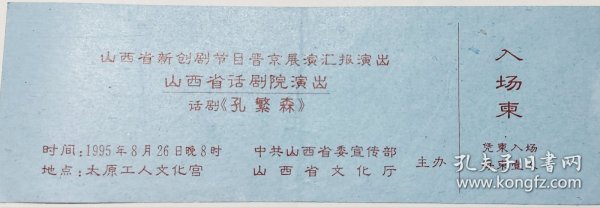 山西省新创剧节目晋京展演汇报演出
山西省话剧院演出
话剧《孔繁森》
时间:1995年8月26日晚8时
地点:太原工人文化宫
中共山西省委宣传部
山西省文化厅
主办
入场柬
凭柬入场
孔夫子旧书网
www.kongfz.com